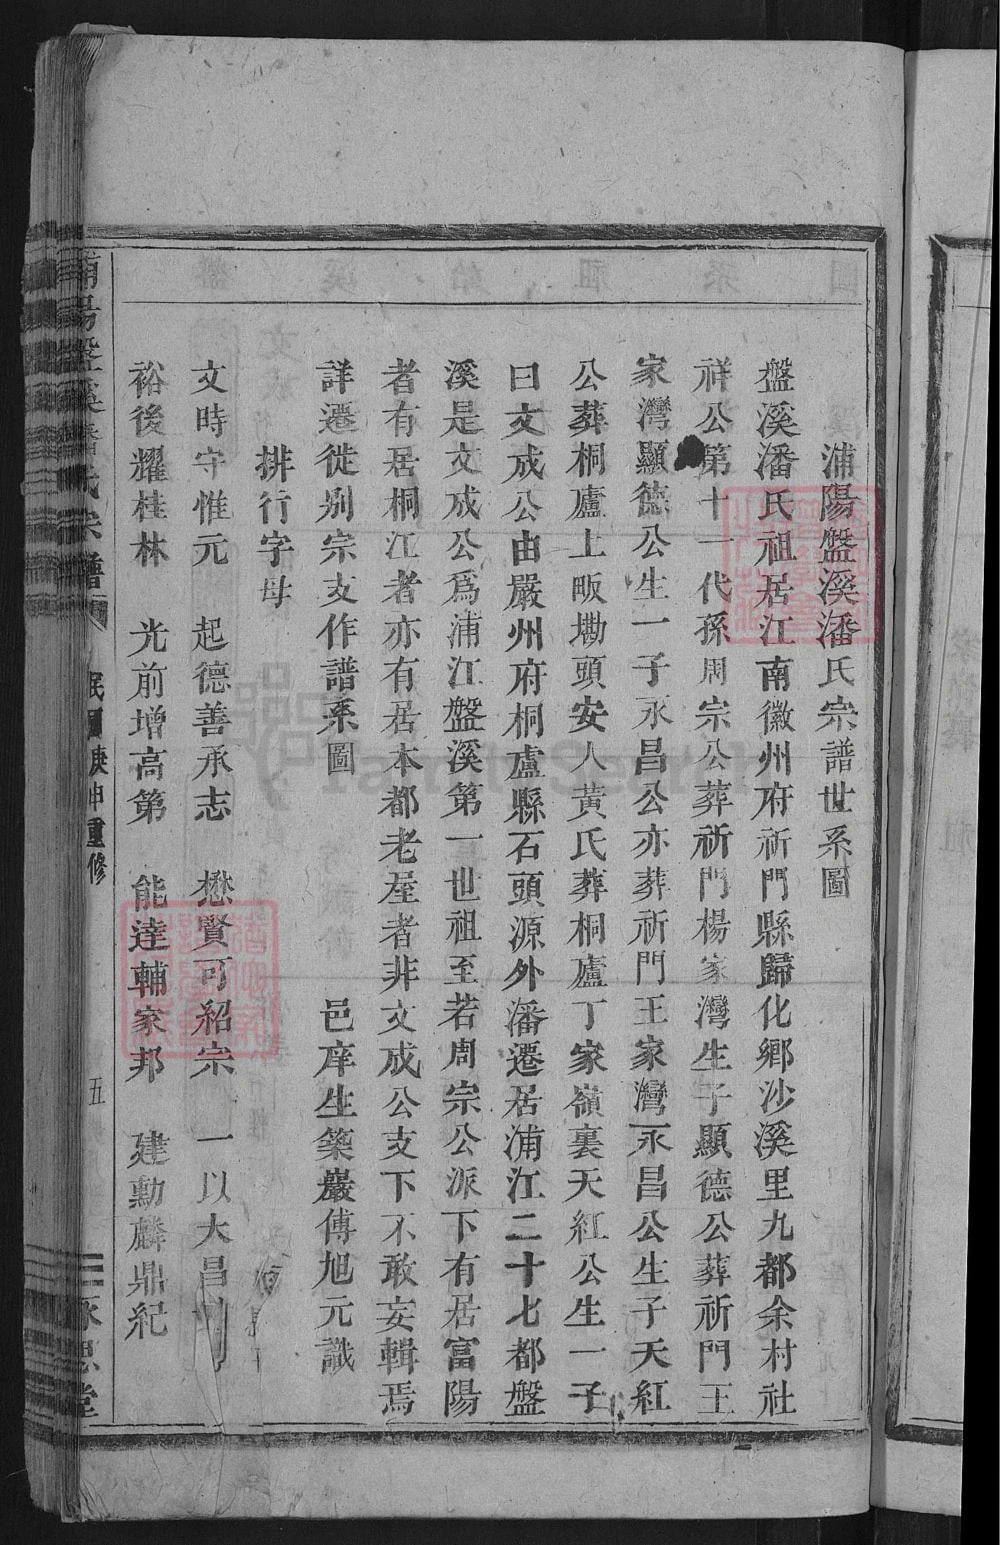 浦陽盤溪潘氏宗譜世系圖
盤溪潘氏祖居江南徽州府祈門縣歸化鄉沙溪里九都余村社
祥公第十一代孫周宗公葬祈門楊家灣生子顯德公葬祈門王
家灣顯德公生一子永昌公亦葬祈門王家灣永昌公生子天紅
公葬桐廬上畈墈頭安人黃氏葬桐廬丁家嶺裏天紅公生一子
曰文成公由嚴州府桐廬縣石頭源外潘遷居浦江二十七都盤
溪是文成公爲浦江盤溪第一世祖至若周宗公派下有居富陽
者有居桐江者亦有居本都老屋者非文成公支下不敢妄輯焉
詳遷徙别宗支作譜系圖 邑庠生築巖傅旭元識
排行字母
文時守惟元 起德善承志 懋賢可紹宗 一以大昌
裕後耀桂林 光前增高第 能達輔家邦 建勳麟鼎紀
浦陽盤溪潘氏宗譜 民國庚申重修 五 永思堂
FamilySearch